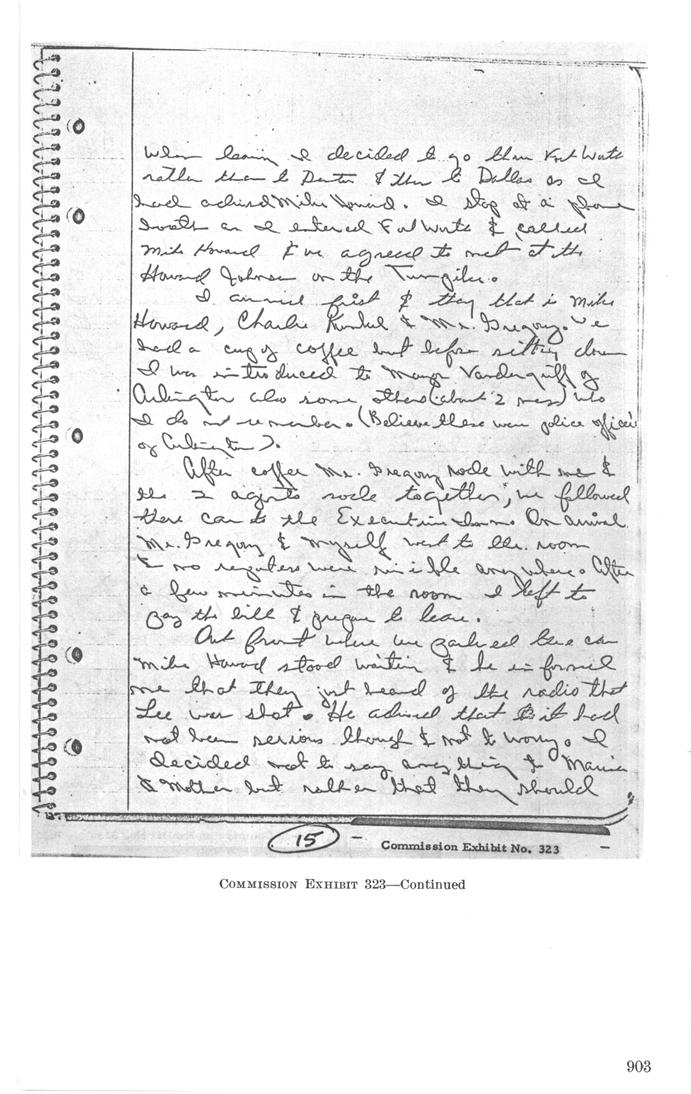 When leaving I decided to go then Fort Worth
rather than to Denton & then to Dallas as I
had advised Mike Howard. I stop at a phone
booth as I entered Fort Worth & called
Mike Howard & we agreed to met at the
Howard Johnson on the Turnpike.
I arrived first & they that is Mike
Howard, Charlie Kunkel & Mr. Gregory. We
had a cup of coffee but before sitting down
I was introduced to Mayor Vandergriff of
Arlington also some others (about 2 men) who
I do not remember. (Believe these were police officers
of Arlington).
After coffee Mr. Gregory rode with me &
the 2 agents rode together, we followed
there car to the Executive Inn. On arrival
Mr. Gregory & myself went to the room
& no reporters were visible anywhere. After
a few minutes in the room I left to
pay the bill & prepare to leave.
Out front where we parked the car
Mike Howard stood waiting & he informed
me that they just heard of the radio that
Lee was shot. He advised that it had
not been serious though & not to worry. I
decided not to say anything to Marina
& Mother but rather that they should
15
Commission Exhibit No. 323
COMMISSION EXHIBIT 323—Continued
903